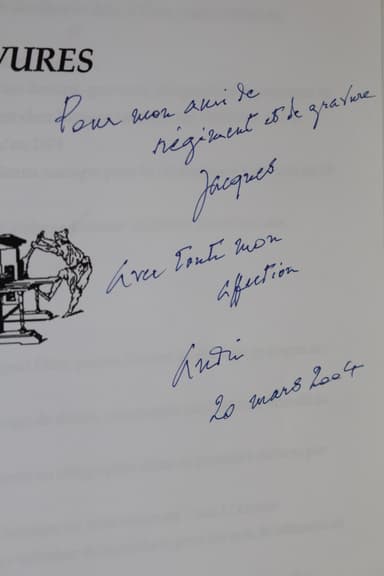 VURES
Pour mon ami de
régiment et de gravure
Jacques
Avec toute mon
affection
André
20 mars 2004